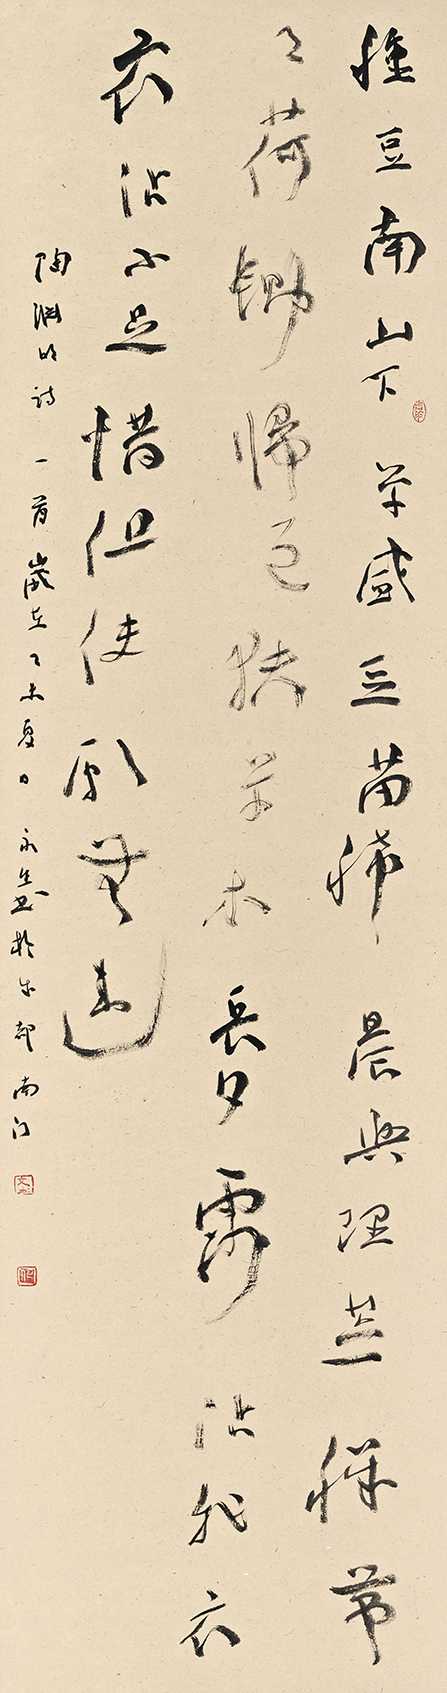 種豆南山下草盛豆苗稀晨興理荒穢帶
月荷鋤歸道狹草木長夕露沾我衣
衣沾不足惜但使願無違
陶淵明詩一首歲在乙未夏日永於都南门